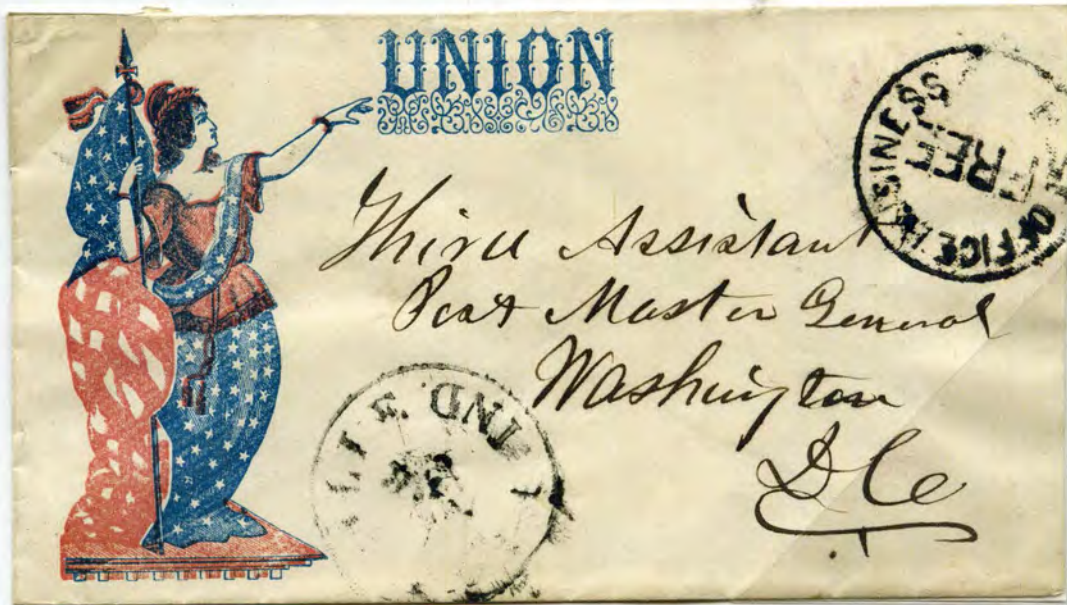 UNION
BUSINESS
FREE
OFFICE
Third Assistant
Post Master General
Washington
D C
IND.